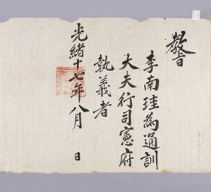 敎旨
李南珪為通訓
大夫行司憲府
執義者
光緒十七年八月 日